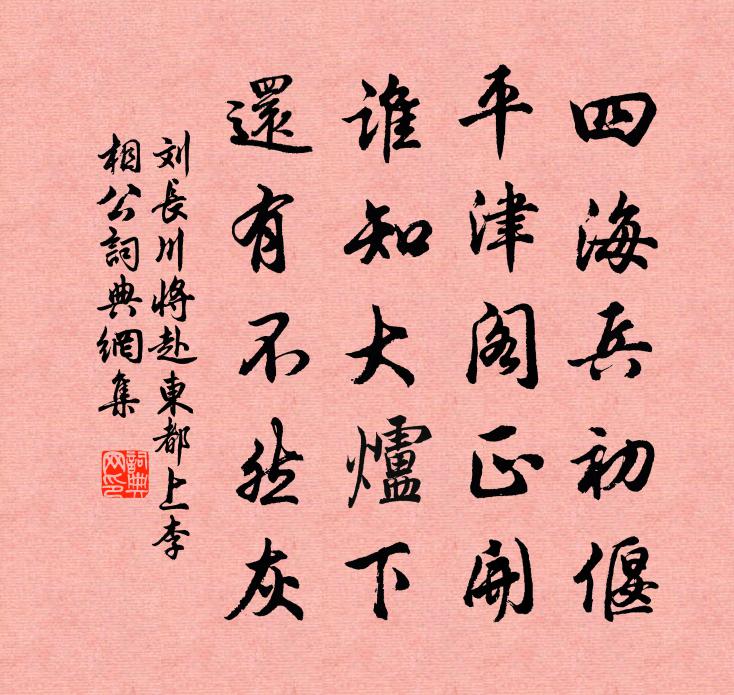 四海兵初偃
平津阁正開
谁知大爐下
還有不然灰
刘長川将赴東都上李
相公詞典網集
詞典网印